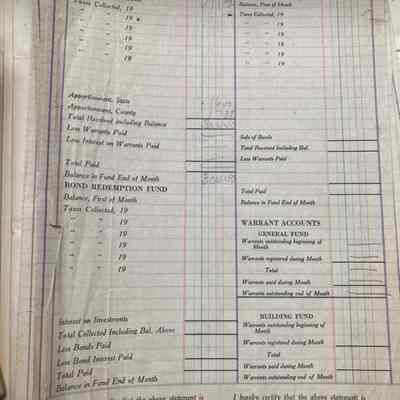 Taxes Collected, 19
" " 19
" " 19
" " 19
" " 19
" " 19
Apportionment, State
Apportionment, County
Total Received including Balance
Less Warrants Paid
Less Interest on Warrants Paid
Total Paid
Balance in Fund End of Month
BOND REDEMPTION FUND
Balance, First of Month
Taxes Collected, 19
" " 19
" " 19
" " 19
" " 19
" " 19
Interest on Investments
Total Collected Including Bal. Above
Less Bonds Paid
Less Bond Interest Paid
Total Paid
Balance in Fund End of Month
that the above statement is
Balance, First of Month
Taxes Collected, 19
" " 19
" " 19
" " 19
" " 19
Sale of Bonds
Total Received Including Bal.
Less Warrants Paid
Total Paid
Balance in Fund End of Month
WARRANT ACCOUNTS
GENERAL FUND
Warrants outstanding beginning of
Month
Warrants registered during Month
Total
Warrants paid during Month
Warrants outstanding end of Month
BUILDING FUND
Warrants outstanding beginning of
Month
Warrants registered during Month
Total
Warrants paid during Month
Warrants outstanding end of Month
I hereby certify that the above statement is